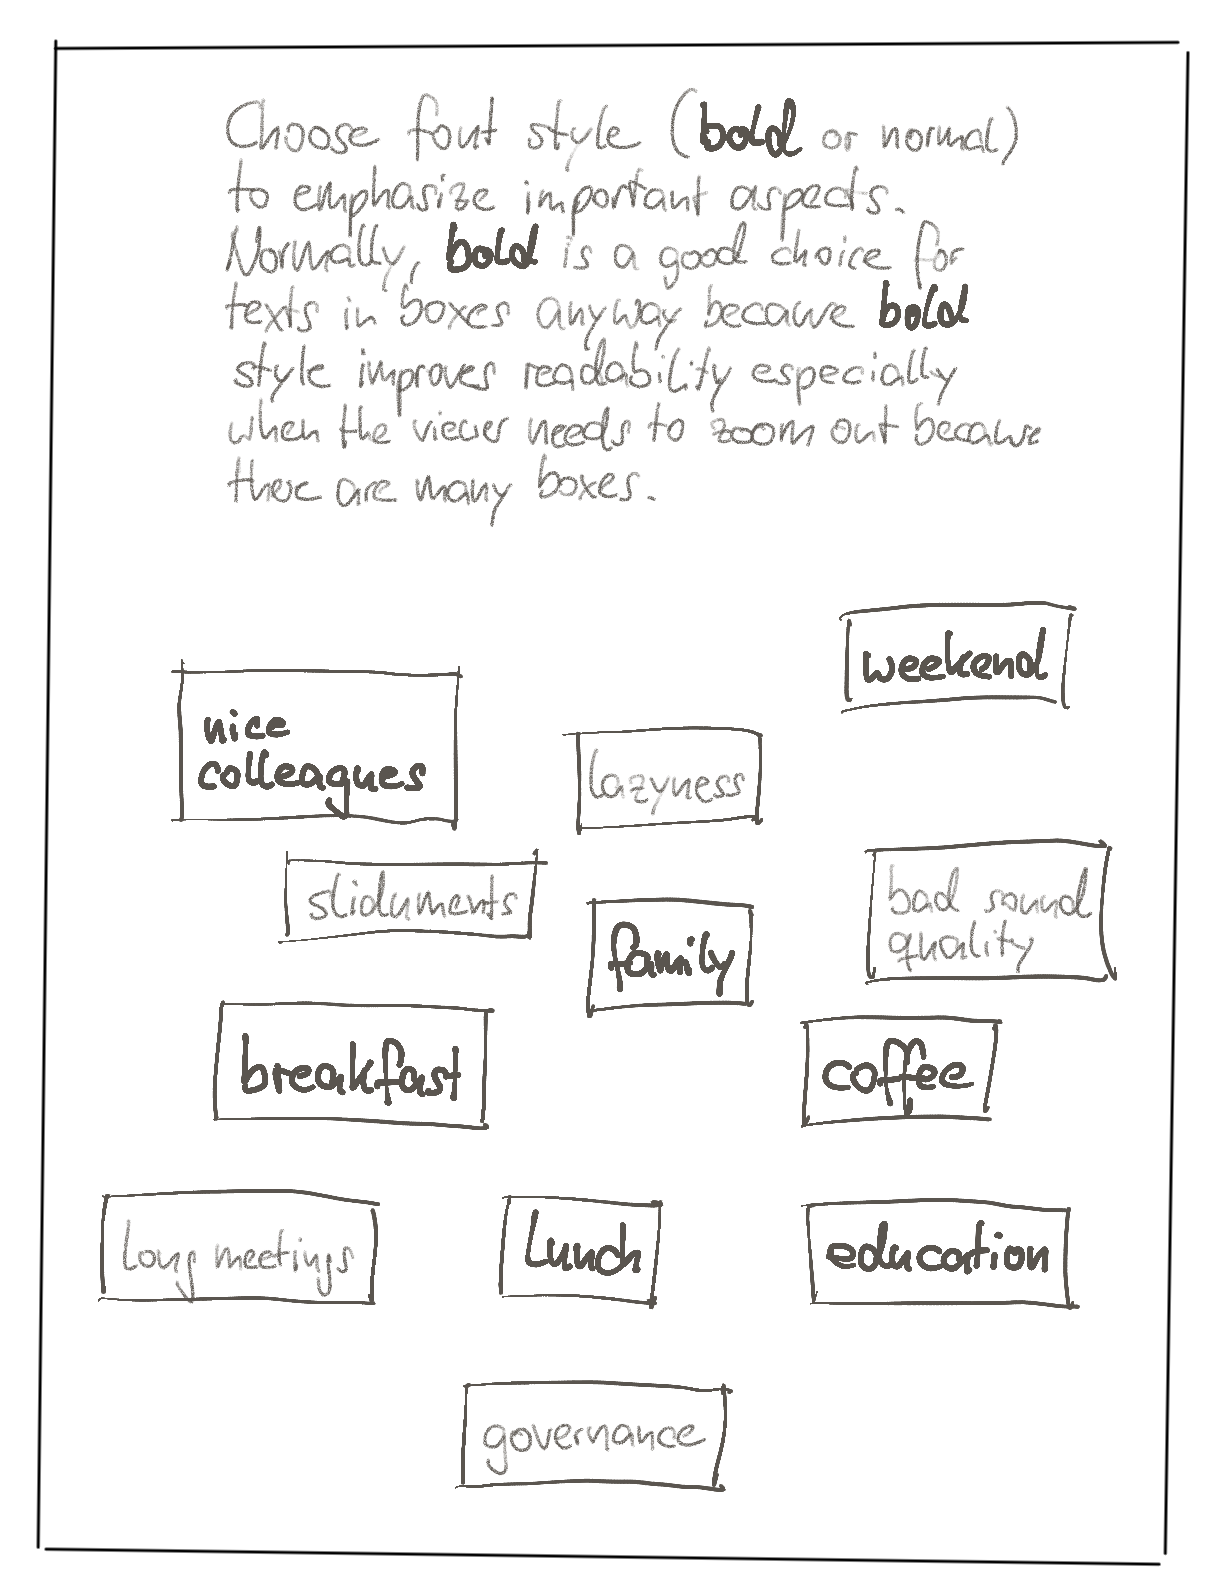 Choose font style (bold or normal)
to emphasize important aspects.
Normally, bold is a good choice for
texts in boxes anyway because bold
style improves readability especially
when the viewer needs to zoom out because
there are many boxes.
weekend
nice
colleagues
lazyness
sliduments
bad sound
quality
family
breakfast
coffee
long meetings
Lunch
education
governance